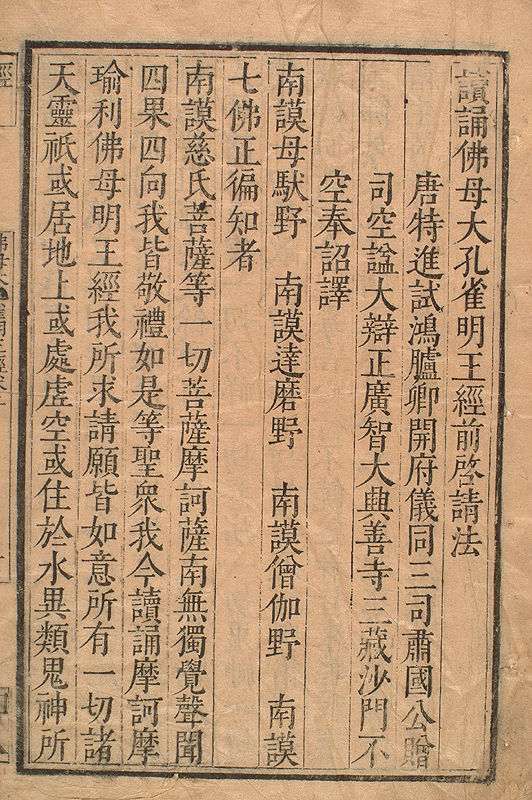 讀誦佛母大孔雀明王經前啓請法
唐特進試鴻臚卿開府儀同三司肅國公贈
司空諡大辯正廣智大興善寺三藏沙門不
空奉詔譯
南謨母馱野 南謨達磨野 南謨僧伽野 南謨
七佛正徧知者
南謨慈氏菩薩等一切菩薩摩訶薩南無獨覺聲聞
四果四向我皆敬禮如是等聖衆我今讀誦摩訶摩
瑜利佛母明王經我所求請願皆如意所有一切諸
天靈祇或居地上或處虛空或住於水異類鬼神所